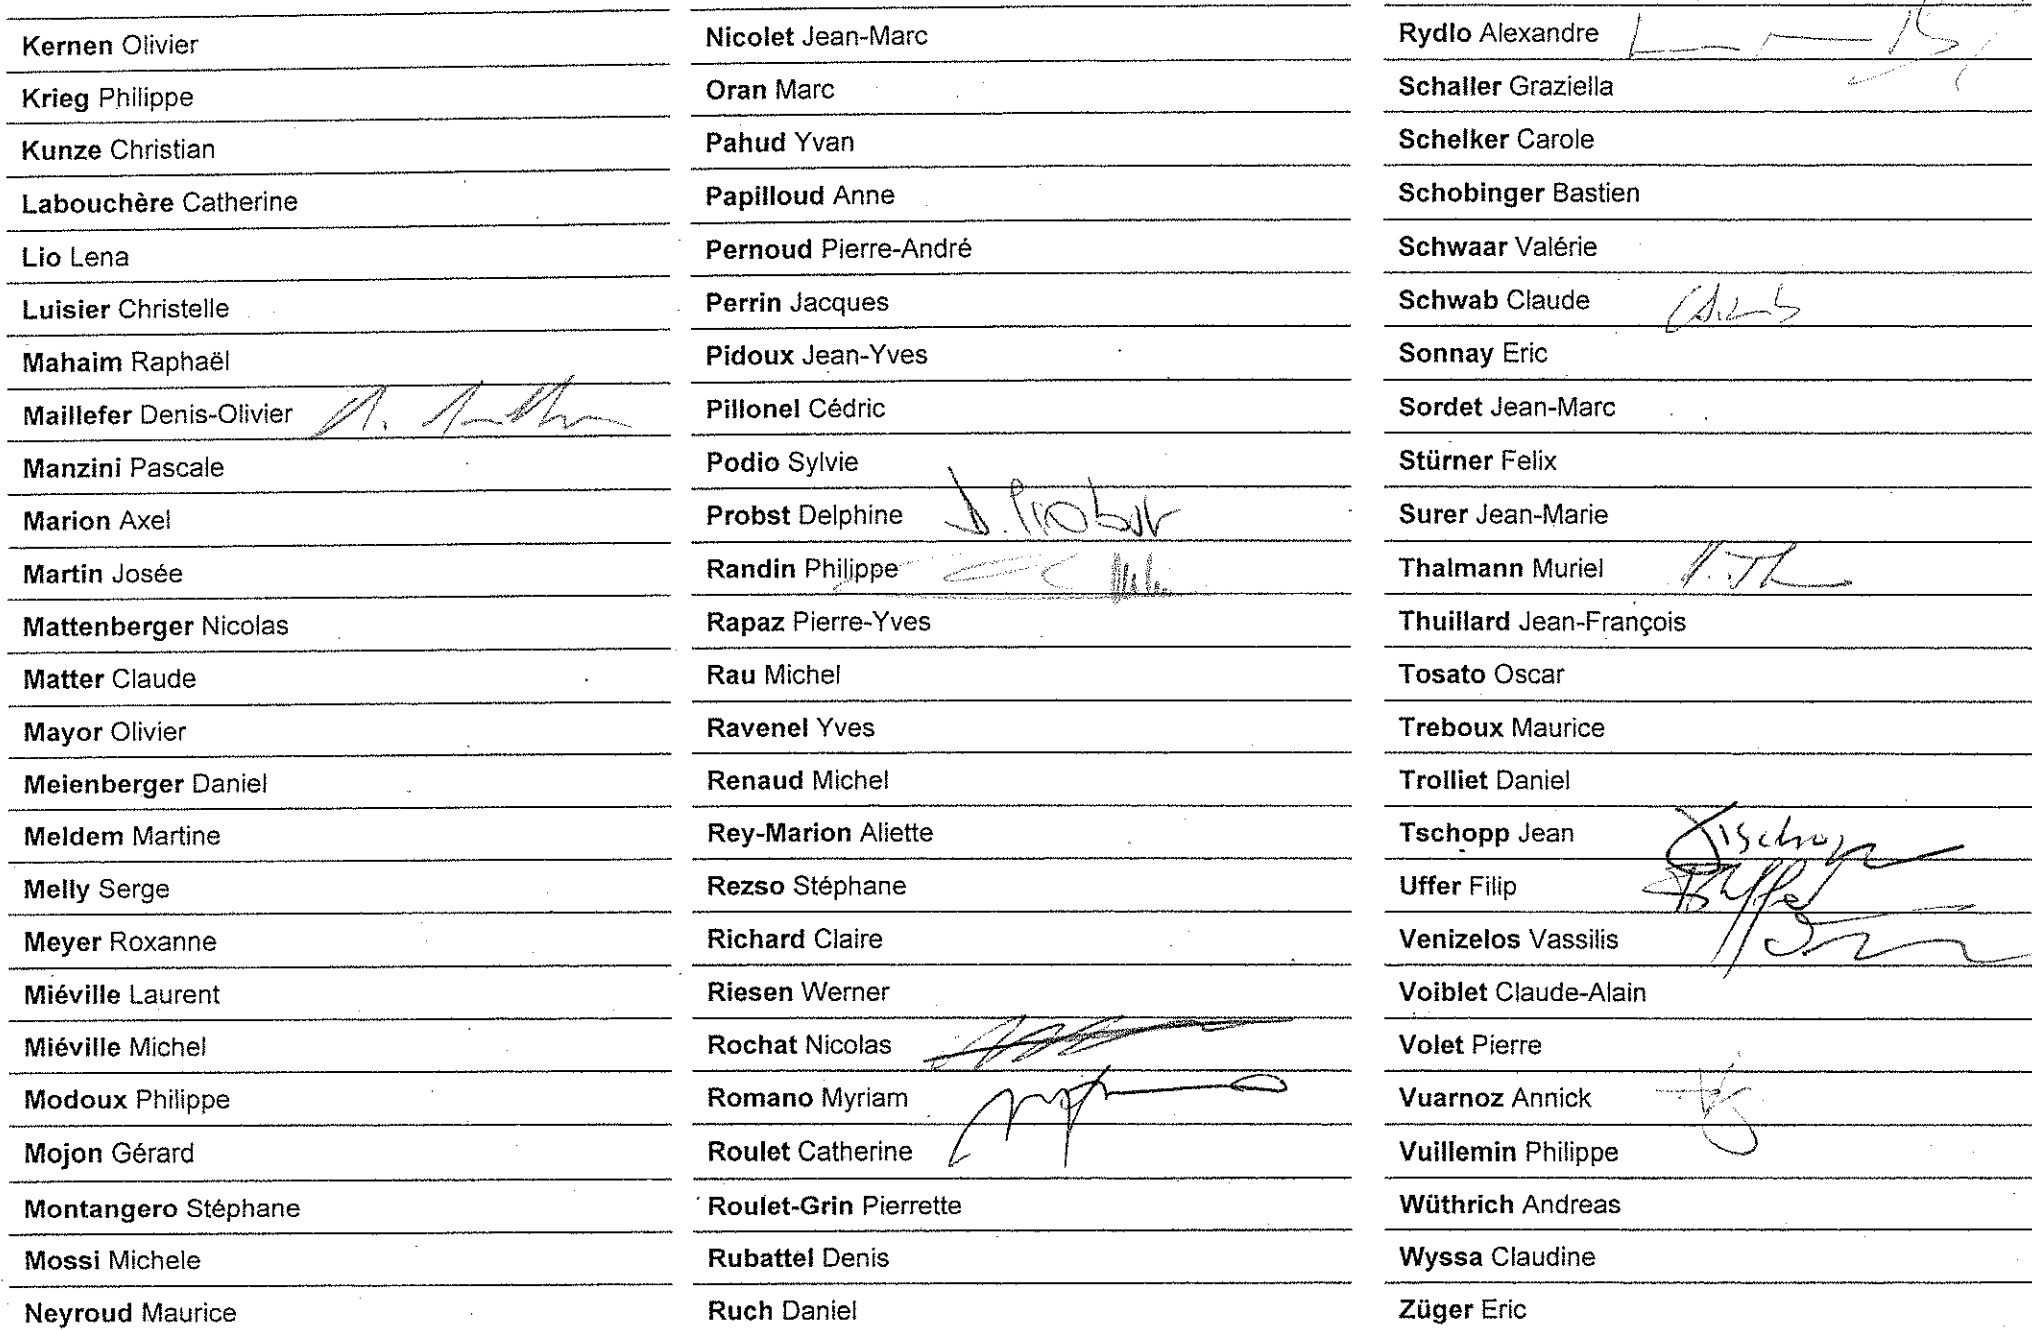 Kernen Olivier
Krieg Philippe
Kunze Christian
Labouchère Catherine
Lio Lena
Luisier Christelle
Mahaim Raphaël
Maillefer Denis-Olivier
Manzini Pascale
Marion Axel
Martin Josée
Mattenberger Nicolas
Matter Claude
Mayor Olivier
Meienberger Daniel
Meldem Martine
Melly Serge
Meyer Roxanne
Miéville Laurent
Miéville Michel
Modoux Philippe
Mojon Gérard
Montangero Stéphane
Mossi Michele
Neyroud Maurice
Nicolet Jean-Marc
Oran Marc
Pahud Yvan
Papilloud Anne
Pernoud Pierre-André
Perrin Jacques
Pidoux Jean-Yves
Pillonel Cédric
Podio Sylvie
Probst Delphine D. Probst
Randin Philippe
Rapaz Pierre-Yves
Rau Michel
Ravenel Yves
Renaud Michel
Rey-Marion Aliette
Rezso Stéphane
Richard Claire
Riesen Werner
Rochat Nicolas
Romano Myriam
Roulet Catherine
Roulet-Grin Pierrette
Rubattel Denis
Ruch Daniel
Rydlo Alexandre
Schaller Graziella
Schelker Carole
Schobinger Bastien
Schwaar Valérie
Schwab Claude
Sonnay Eric
Sordet Jean-Marc
Stürner Felix
Surer Jean-Marie
Thalmann Muriel
Thuillard Jean-François
Tosato Oscar
Treboux Maurice
Trolliet Daniel
Tschopp Jean Tschopp
Uffer Filip
Venizelos Vassilis
Voiblet Claude-Alain
Volet Pierre
Vuarnoz Annick
Vuillemin Philippe
Wüthrich Andreas
Wyssa Claudine
Züger Eric